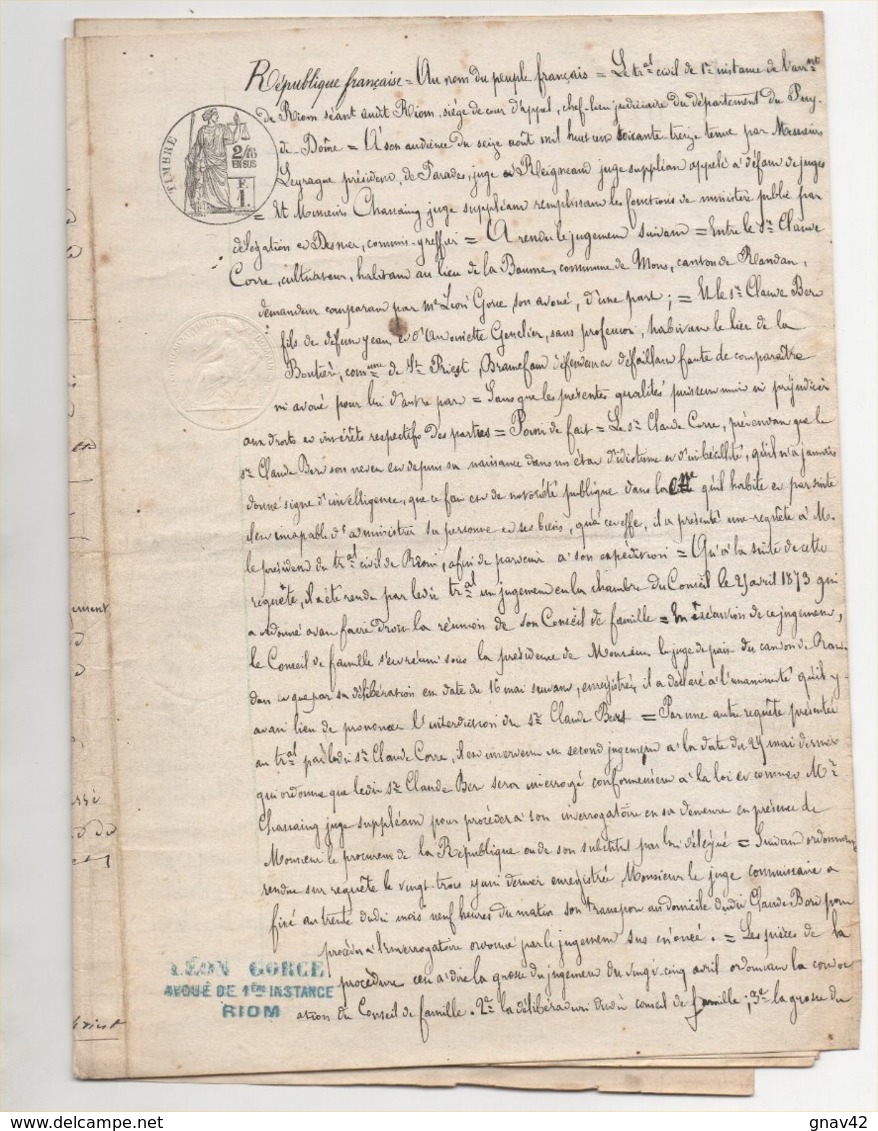 République française = Au nom du peuple français = Le tr.al civil de 1re instance de l'arr.nt
de Riom séant audit Riom, siège de cour d'appel, chef-lieu judiciaire du département du Puy-
de Dôme = A son audience du seize août mil huit cent soixante treize tenue par Messieurs
Leyragne président, de Parades, juge et Reignaud juge suppléant appelé à défaut de juges
= Et Monsieur Chassaing juge suppléant remplissant les fonctions de ministère public par
délégation et Besner, commis-greffier = A rendu le jugement suivant = Entre le Sr Claude
Corre, cultivateur, habitant au lieu de la Baume, commune de Mons, canton de Randan,
demandeur comparant par Me Léon Gorce son avoué, d'une part ; = Et le Sr Claude Ber
fils de défunt Jean et d'Antoinette Genelier, sans profession, habitant le lieu de la
Boutière, comune de St Priest, Bramefant défendeur et défaillant faute de comparaître
ni avoué pour lui d'autre part = Sans que les présentes qualités puissent nuir ni préjudicier
aux droits et intérêts respectifs des parties = Point de fait = Le Sr Claude Corre, prétendant que le
Sr Claude Ber son neveu est depuis sa naissance dans un état d'idiotisme et d'imbécillité, qu'il n'a jamais
donné signe d'intelligence, que ce fait est de notoriété publique dans la cne qu'il habite et par suite
il est incapable d'administrer sa personne et ses biens, qu'à cet effet, il a présenté une requête à M.
le président du tr.al civil de Riom, afin de parvenir à son = Qu'à la suite de cette
requête, il a été rendu par ledit tr.al un jugement en la chambre du Conseil le 25 avril 1873 qui
a ordonné avant faire droit la réunion de son Conseil de famille = En exécution de ce jugement,
le Conseil de famille s'est réuni sous la présidence de Monsieur le juge de paix du canton de Ran-
dan et que par sa délibération en date du 16 mai suivant, enregistrée, il a déclaré à l'unanimité qu'il y
avait lieu de prononcer l'interdiction du Sr Claude Bert = Par une autre requête présentée
au tr.al par ledit Sr Claude Corre, il est intervenu un second jugement à la date du 29 mai dernier
qui ordonne que ledit Sr Claude Ber sera interrogé conformément à la loi et commet Mr
Chassaing juge suppléant pour procéder à son interrogatoire en sa demeure en présence de
Monsieur le procureur de la République ou de son substitut par lui délégué = Suivant ordonnance
rendue sur requête le vingt-trois juin dernier enregistrée, Monsieur le juge commissaire a
fixé au trente dudit mois neuf heures du matin son transport au domicile dudit Claude Bert pour
procéder à l'interrogatoire ordonné par le jugement sus énoncé. = Les pièces de la
procédure c'est à dire la grosse du jugement du vingt-cinq avril ordonnant la convoc
ation du Conseil de famille. 2e la délibération dudit conseil de famille ; 3e la grosse du
TIMBRE
2/10
EN SUS
F.
1.
LÉON GORCE
AVOUÉ DE 1ère INSTANCE
RIOM
gnav42